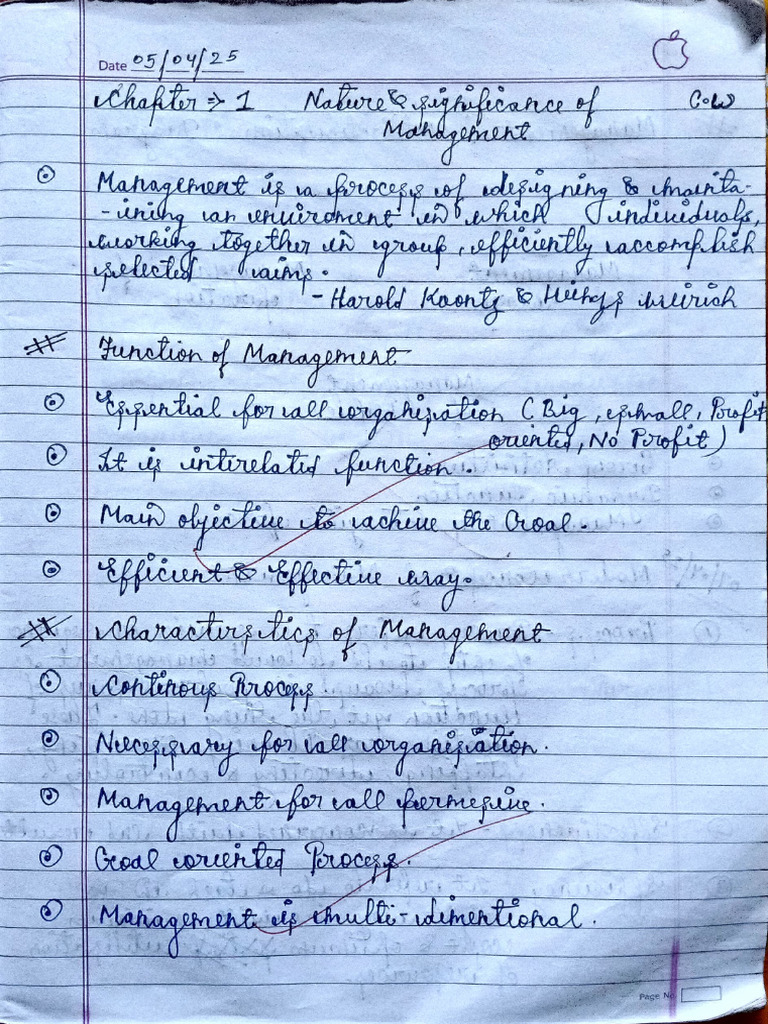 Date 05/04/25
Chapter ⇒ 1 Nature & significance of C.W
Management
Management is a process of designing & mainta-
-ining an enviroment in which individuals,
working together in group, efficiently accomplish
selected aims.
- Harold Koontz & Heinz weirich
# Function of Management
Essential for all organization (Big, small, Profit
oriented, No Profit)
It is interelated function.
Main objective to achieve the Goal.
Efficient & Effective way.
# Characteristics of Management
Continous Process.
Necessary for all organization.
Management for all
Goal oriented Process.
Management is multi-dimentional.
Page No.